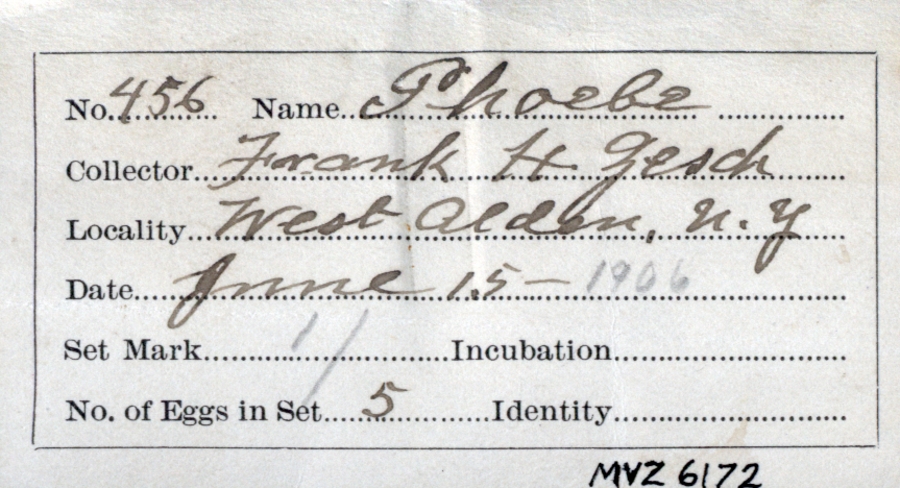 No. 456 Name Phoebe
Collector Frank H Gesch
Locality West Alden, N.Y
Date June 15 - 1906
Set Mark 1/ Incubation
No. of Eggs in Set 5 Identity
MVZ 6172